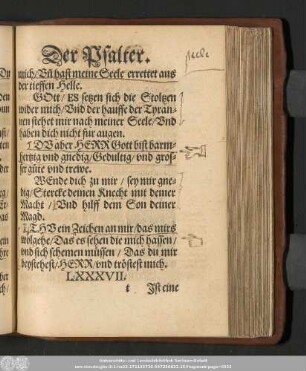 Der Psalter.
mich/ Vñ hast meine Seele errettet aus
der tieffen Helle.
GOtt/ ES setzen sich die Stoltzen
wider mich/ Vnd der hauffe der Tyran-
nen stehet mir nach meiner Seele/ Vnd
haben dich nicht fur augen.
DV aber HERR Gott bist barm-
hertzig vnd gnedig/ Gedültig/ vnd gros-
ser güte vnd trewe.
WEnde dich zu mir/ sey mir gne-
dig/ Stercke deinen Knecht mit deiner
Macht/ Vnd hilff dem Son deiner
Magd.
THV ein Zeichen an mir/ das mirs
wolgehe/ Das es sehen die mich hassen/
vnd sich schemen müssen/ Das du mir
beystehest/ HERR/ vnd tröstest mich.
LXXXVII.
t Ist eine